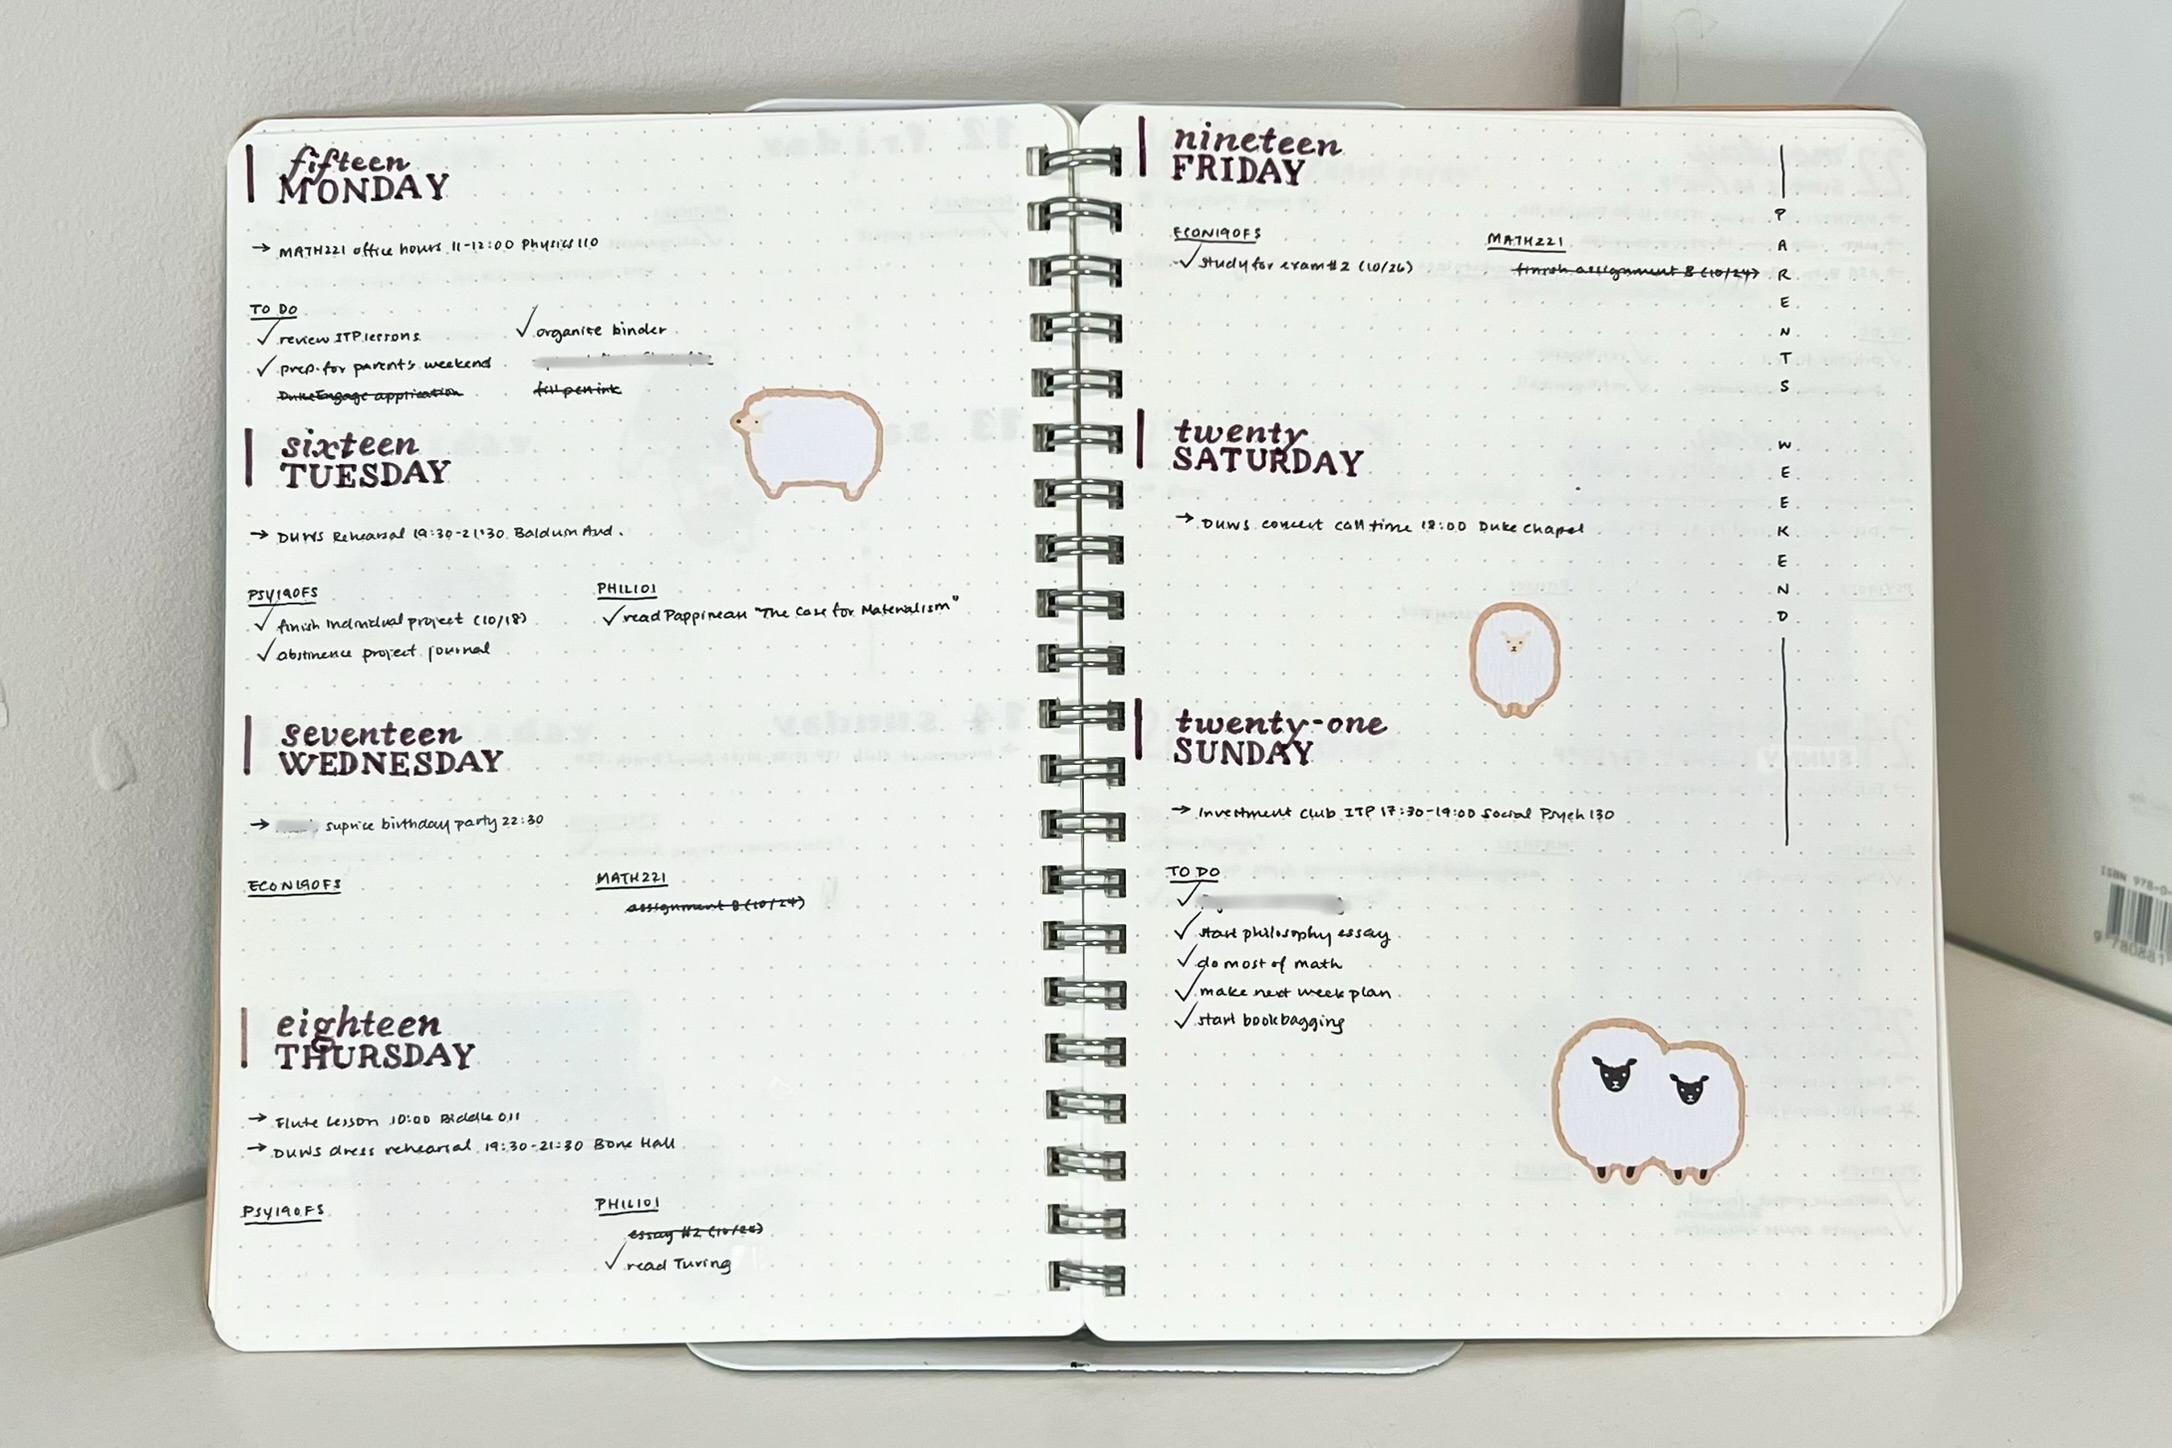 fifteen
MONDAY
→ MATH221 office hours 11-12:00 Physics 110
TO DO
✓ review ITP lessons
✓ prep. for parent's weekend
DukeEngage application
✓ organize binder
fill pen ink
sixteen
TUESDAY
→ DUWS Rehearsal 19:30-21:30 Baldwin Aud.
PSY190FS
✓ finish individual project (10/18)
✓ abstinence project journal
PHIL101
✓ read Pappineau "The Case for Materialism"
seventeen
WEDNESDAY
→ suprice birthday party 22:30
ECON190FS
MATH221
assignment 8 (10/24)
eighteen
THURSDAY
→ Flute Lesson 10:00 Biddle 011
→ DUWS dress rehearsal 19:30-21:30 Bone Hall
PSY190FS
PHIL101
essay #2
✓ read Turing
nineteen
FRIDAY
ECON190FS
✓ study for exam #2 (10/26)
MATH221
finish assignment 8 (10/24)
PARENTS WEEKEND
twenty
SATURDAY
→ DUWS concert call time 18:00 Duke Chapel
twenty-one
SUNDAY
→ Investment Club ITP 17:30-19:00 Social Psych 130
TO DO
✓ start philosophy essay
✓ do most of math
✓ make next week plan
✓ start bookbagging